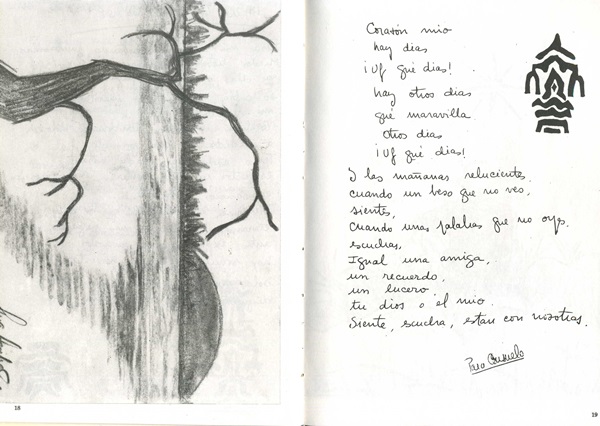 18
Corazón mio
hay dias
¡Uf qué dias!
hay otros dias
qué maravilla
otros dias
¡Uf qué dias!
Y las mañanas relucientes.
cuando un beso que no ves,
sientes,
Cuando unas palabras que no oyes.
escuchas,
Igual una amiga,
un recuerdo,
un lucero
tu dios o el mio.
Siente, escucha, están con nosotras.
19